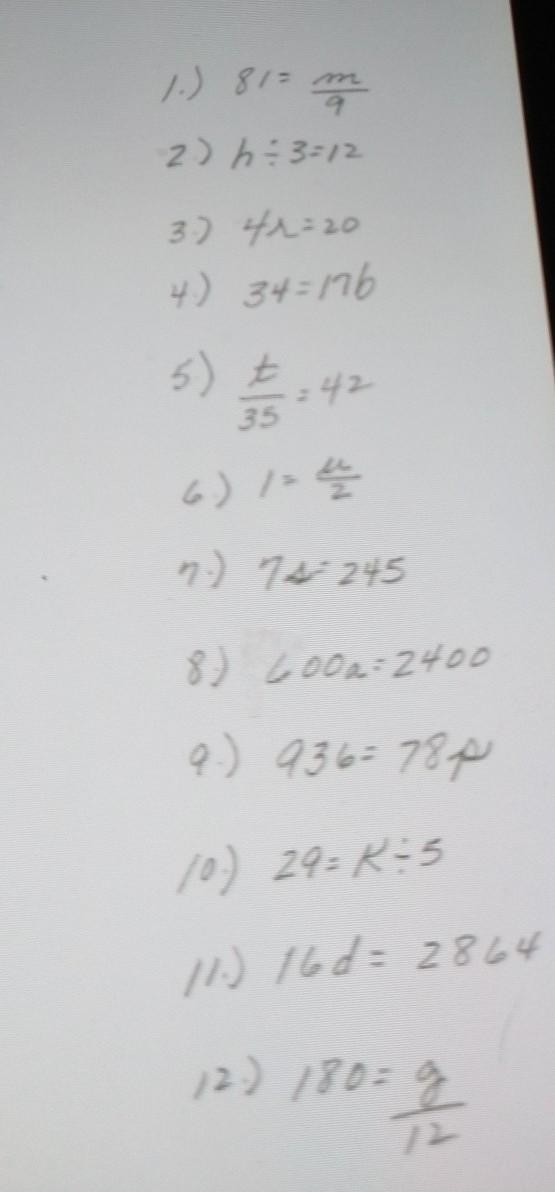 1.) 81 = m/9
2) h ÷ 3 = 12
3.) 4r = 20
4.) 34 = 17b
5) t/35 = 42
6.) 1 = u/2
7.) 7s = 245
8.) 600a = 2400
9.) 936 = 78p
10.) 29 = K ÷ 5
11.) 16d = 2864
12.) 180 = g/12